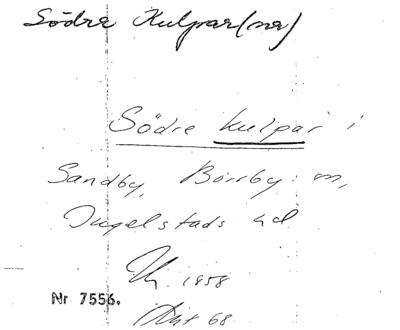 Södre Kulpar(na)
Södre Kulpar i
Sandby, Borrby sn,
Ingelstads hd
1958
Nr 7556.
68